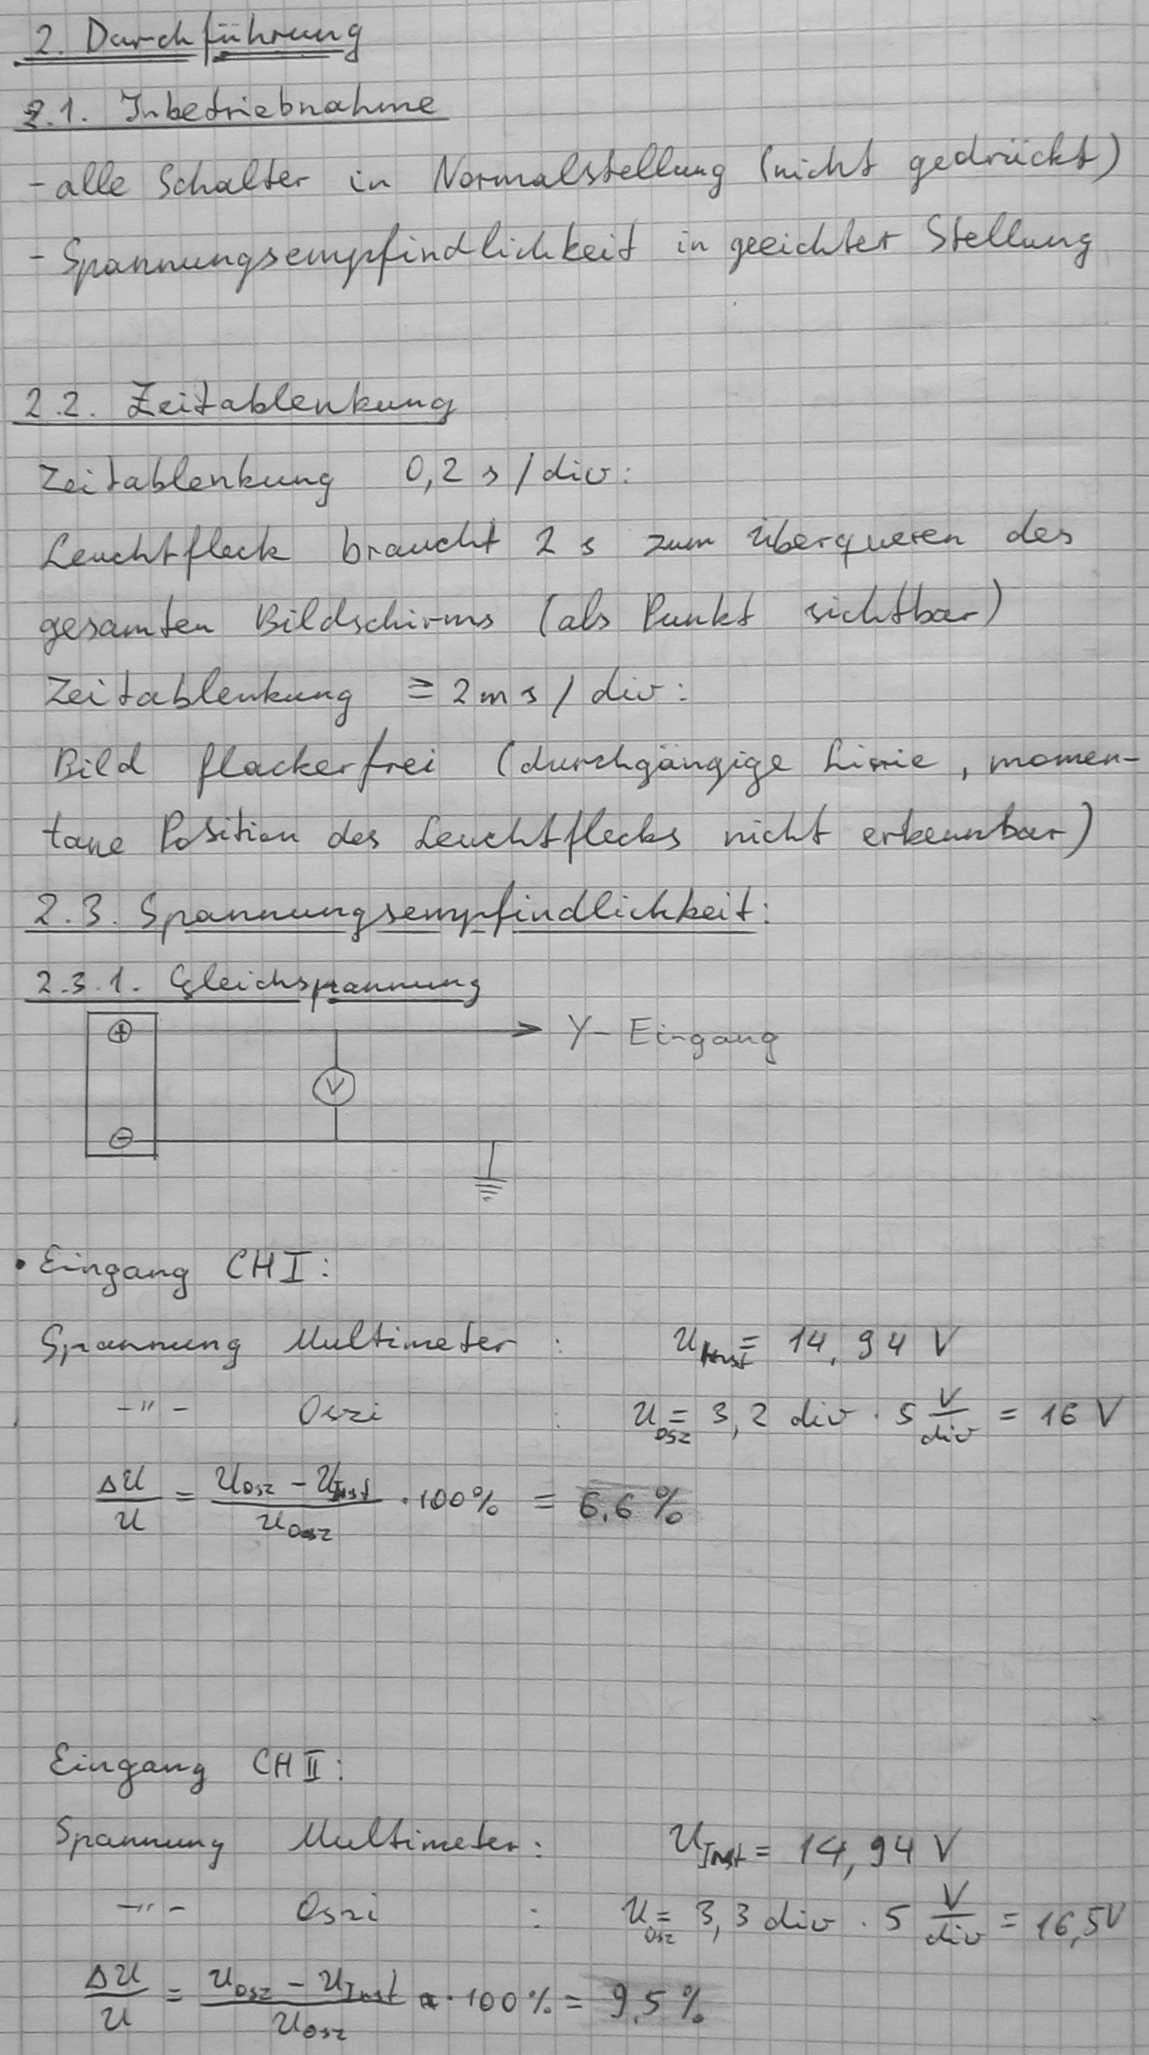 2. Durchführung
2.1. Inbetriebnahme
- alle Schalter in Normalstellung (nicht gedrückt)
- Spannungsempfindlichkeit in geeichter Stellung
2.2. Zeitablenkung
Zeitablenkung 0,2 s / div:
Leuchtfleck braucht 2 s zum überqueren des
gesamten Bildschirms (als Punkt sichtbar)
Zeitablenkung ≥ 2 ms / div:
Bild flackerfrei (durchgängige Linie, momen-
tane Position des Leuchtflecks nicht erkennbar)
2.3. Spannungsempfindlichkeit:
2.3.1. Gleichspannung
+ Y-Eingang
V
-
• Eingang CH I:
Spannung Multimeter : U_Inst = 14,94 V
-"- Oszi : U_Osz = 3,2 div · 5 V/div = 16 V
ΔU/U = (U_Osz - U_Inst)/U_Osz · 100% = 6,6 %
Eingang CH II:
Spannung Multimeter: U_Inst = 14,94 V
-"- Oszi : U_Osz = 3,3 div · 5 V/div = 16,5 V
ΔU/U = (U_Osz - U_Inst)/U_Osz · 100% = 9,5 %